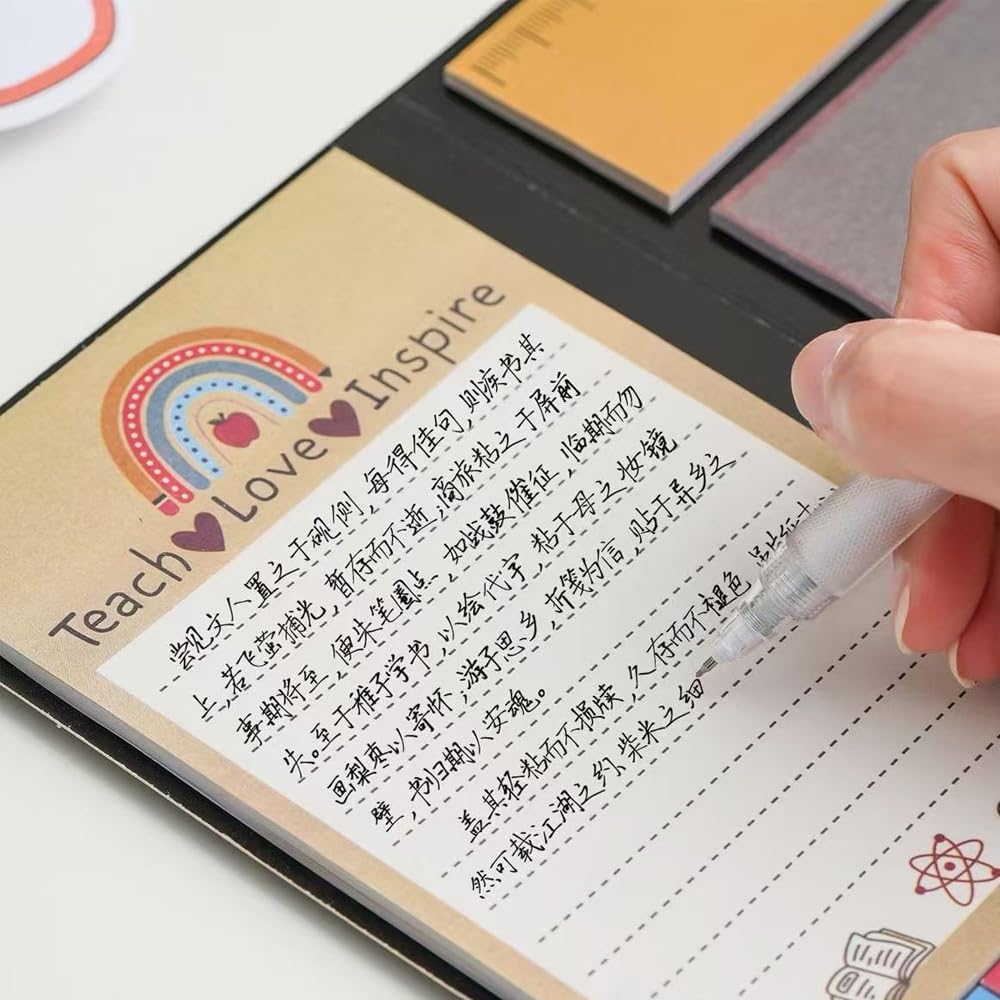 Teach Love Inspire
尝见文人置之于砚侧,每得佳句,则疾书其
上,若飞萤捕光,暂存而不逝,商旅粘之于屏前
事期将至,便朱笔圈点,如战鼓催征,临期而勿
失。至于稚子学书,以绘代字,粘于母之妆镜
画梨枣以寄怀,游子思乡,折笺为信,贴于异乡之
壁,书归期以安魂。
盖其轻粘而不损牍,久存而不褪色
然可载江湖之约,柴米之细